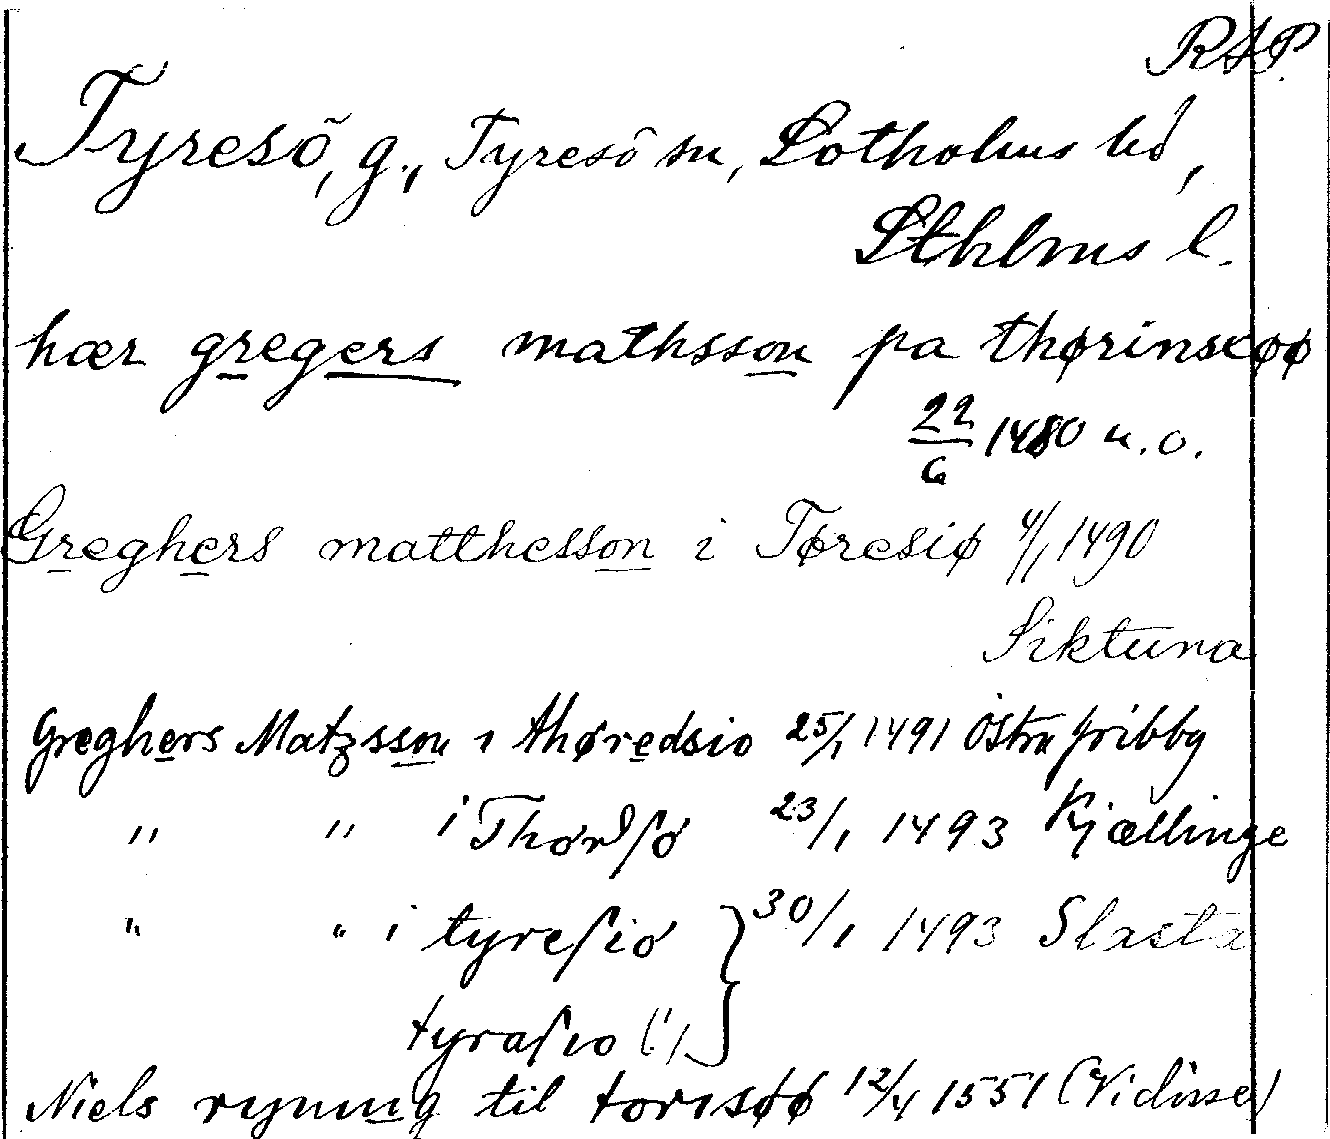 RAP.
Tyresö, g., Tyresö sn, Sotholms hd,
Sthlms l.
hær gregers mathsson pa thørinseøø
22/6 1480 u.o.
Greghers matthesson i Tøresiø 4/1 1490
Siktuna
Greghers Matzsson i thøredsio 25/1 1491 Östra fribby
" " i Thördsö 23/1 1493 Kjællinge
" " i tyresiö } 30/1 1493 Slasta
tyrasio (!)
Niels ryning til torisøø 12/4 1551 (Vidisse)